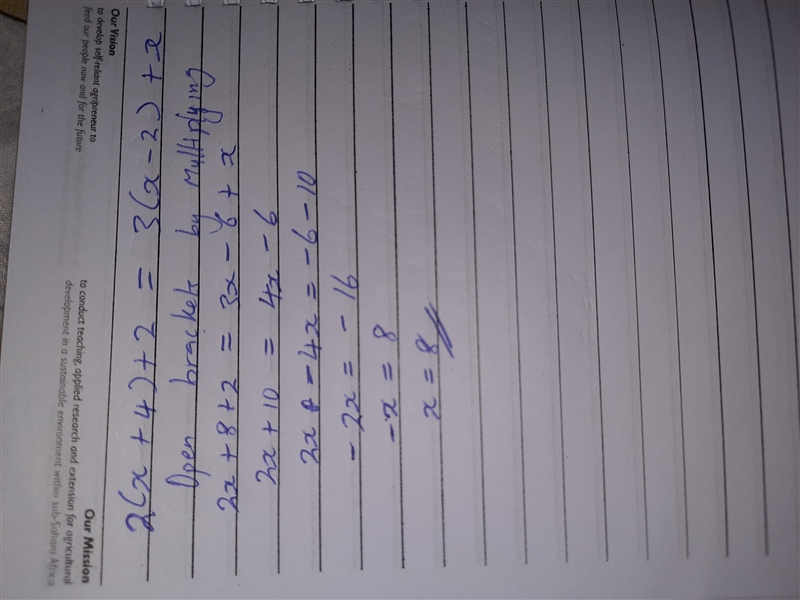 Our Vision
to develop self-reliant agripreneur to
feed our people now and for the future
Our Mission
to conduct teaching, applied research and extension for agricultural
development in a sustainable environment within sub-Sahara Africa
2(x + 4) + 2 = 3(x - 2) + x
Open brackets by multiplying
2x + 8 + 2 = 3x - 6 + x
2x + 10 = 4x - 6
2x - 4x = -6 - 10
- 2x = - 16
-x = 8
x = 8